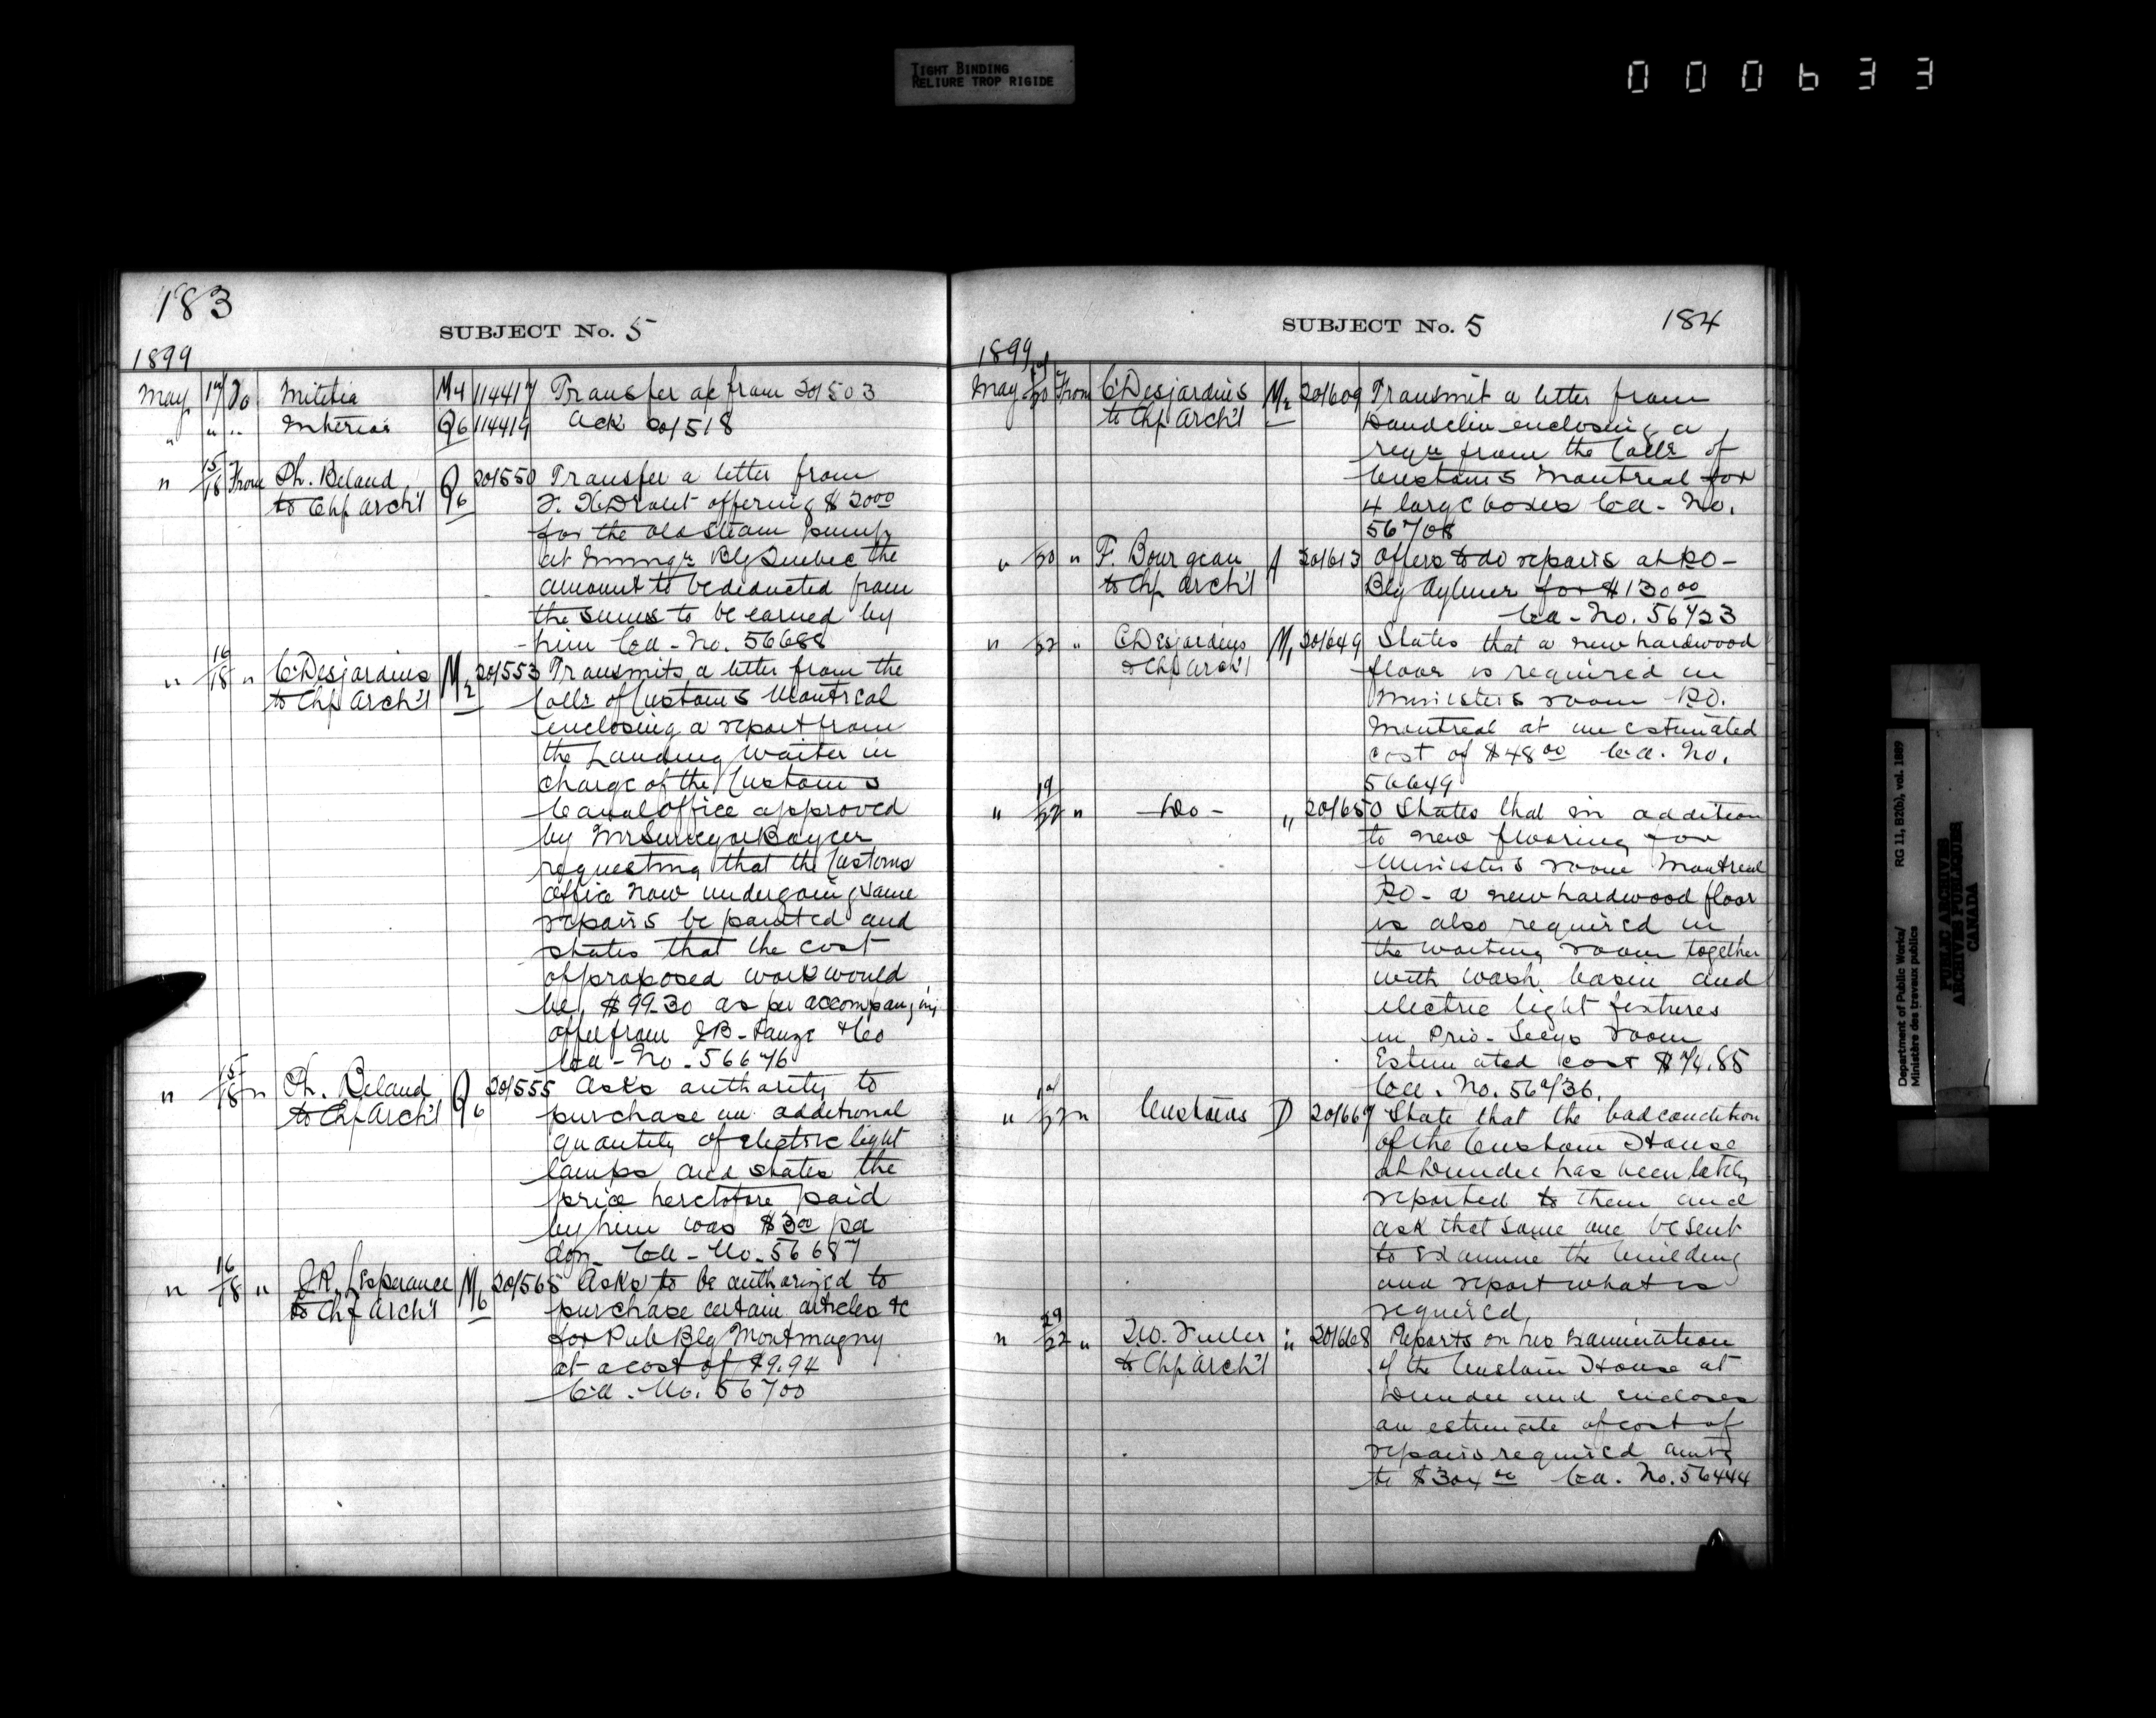 TIGHT BINDING
RELIURE TROP RIGIDE
000633
183
SUBJECT No. 5
1899
May 17 To Militia M4 114417 Transfer ac from 201503
" " " Interior Q6 114419 Ack 201518
" 15/18 From Ph. Beland Q6 201550 Transfer a letter from
to Chf Arch't F. X. Drolet offering $2000
for the old steam pump
at Immigr Blg Quebec the
amount to be deducted from
the sums to be earned by
him Ca - No. 56688
" 16/18 " C Desjardins M2 201553 Transmits a letter from the
to Chf Arch't Collr of Customs Montreal
enclosing a report from
the Landing Waiter in
charge of the Customs
Canal Office approved
by Mr Surveyor
requesting that the Customs
Office now undergoing same
repairs be painted and
states that the cost
of proposed work would
be $99.30 as per accompanying
offer from J B - & Co
Ca - No - 56676
" 15/18 " Ph. Beland Q6 201555 Asks authority to
to Chf Arch't purchase an additional
quantity of electric light
lamps and states the
price heretofore paid
by him was $3.00 per
doz. Ca - No. 56687
" 16/18 " J R. L'Esperance M6 201565 Asks to be authorized to
to Chf Arch't purchase certain articles &c
for Pub Blg Montmagny
at a cost of $9.94
Ca - No. 56700
SUBJECT No. 5
184
1899
May 19/20 From C Desjardins M2 201609 Transmit a letter from
to Chf Arch't Dandelin enclosing a
reqn from the Collr of
Customs Montreal for
4 large boxes Ca - No.
56708
" 20 " F. Bourgeau A 201613 Offers to do repairs at P.O -
to Chf Arch't Blg Aylmer for $130.00
Ca - No. 56723
" 22 " C Desjardins M1 201649 States that a new hardwood
to Chf Arch't floor is required in
Ministers room P.O.
Montreal at an estimated
cost of $48.00 Ca. No.
56649
" 19/22 " - Do - " 201650 States that in addition
to new flooring for
Ministers room Montreal
P.O - a new hardwood floor
is also required in
the waiting room together
with wash basin and
electric light fixtures
in Priv. Secys room
Estimated cost $74.85
Ca. No. 56736.
" 19/22 " Customs D 201667 State that the bad condition
of the Custom House
at Dundee has been lately
reported to them and
ask that some one be sent
to examine the building
and report what is
required
" 29/22 " T.W. Fuller " 201668 Reports on his examination
to Chf Arch't of the Custom House at
Dundee and encloses
an estimate of cost of
repairs required amtg
to $304.00 Ca. No. 56444
Department of Public Works/
Ministère des travaux publics
RG 11, B2(b), vol. 1889
PUBLIC ARCHIVES
ARCHIVES PUBLIQUES
CANADA